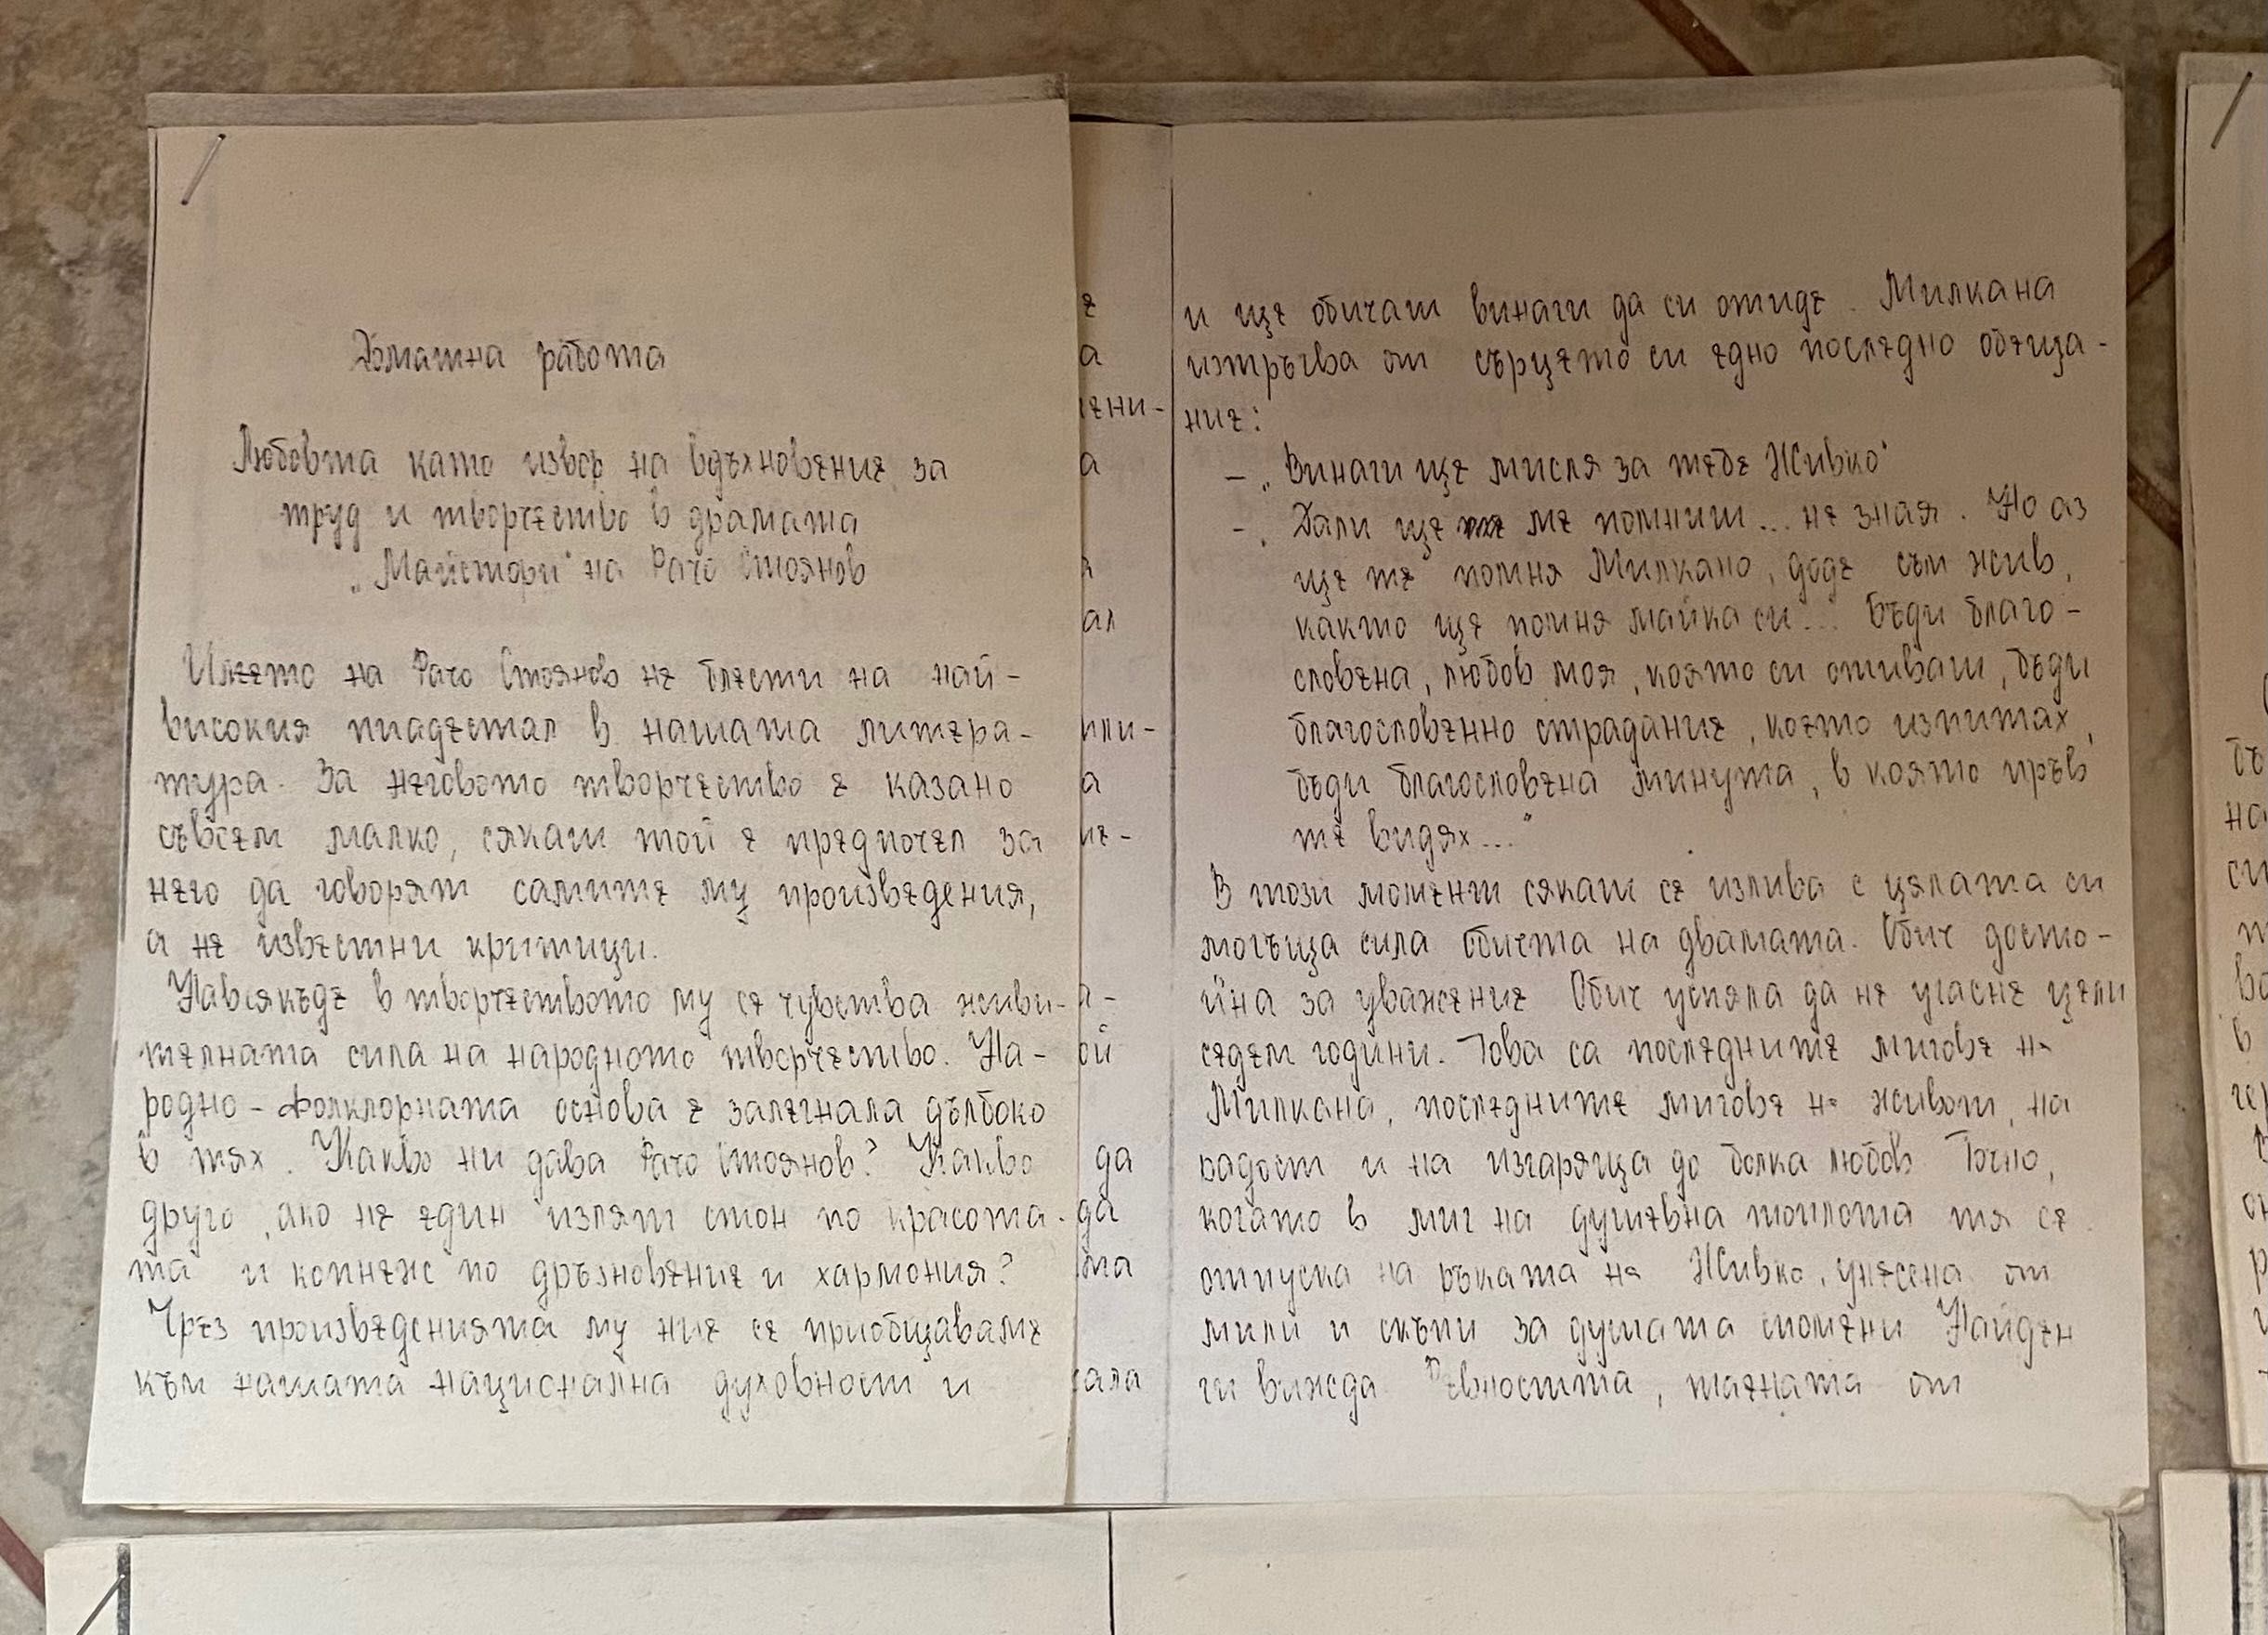 Домашна работа
Любовта като извор на вдъхновение за
труд и творчество в драмата
„Майстори" на Рачо Стоянов
Името на Рачо Стоянов не блести на най-
високия пиадестал в нашата литера-
тура. За неговото творчество е казано
съвсем малко, сякаш той е предпочел за
него да говорят самите му произведения,
а не известни критици.
Навсякъде в творчеството му се чувства живи-
телната сила на народното творчество. На-
родно-фолклорната основа е залегнала дълбоко
в тях. Какво ни дава Рачо Стоянов? Какво
друго, ако не един излят стон по красота-
та и копнеж по дръзновение и хармония?
Чрез произведенията му ние се приобщаваме
към нашата национална духовност и
е
а
ени-
а
я
ал
или-
а
ие-
я-
ой
да
да
та
сала
и ще обичаш винаги да си отиде. Милкана
изтръгва от сърцето си едно последно обеща-
ние:
- „Винаги ще мисля за тебе Живко"
- „Дали ще ме помниш... не зная. Но аз
ще те помня Милкано, доде съм жив,
както ще помня майка си... Бъди благо-
словена, любов моя, която си отиваш, бъди
благословенно страдание, което изпитах,
бъди благословена минута, в която пръв
те видях..."
В този момент сякаш се излива с цялата си
могъща сила обичта на двамата. Обич досто-
йна за уважение Обич успяла да не угасне цели
седем години. Това са последните мигове на
Милкана, последните мигове на живот, на
радост и на изгаряща до болка любов Точно,
когато в миг на душевна топлота тя се
отпуска на ръката на Живко, унесена от
мили и скъпи за душата спомени Найден
ги вижда Ревността, таената от
бъ
на
си
т
ва
в
ге